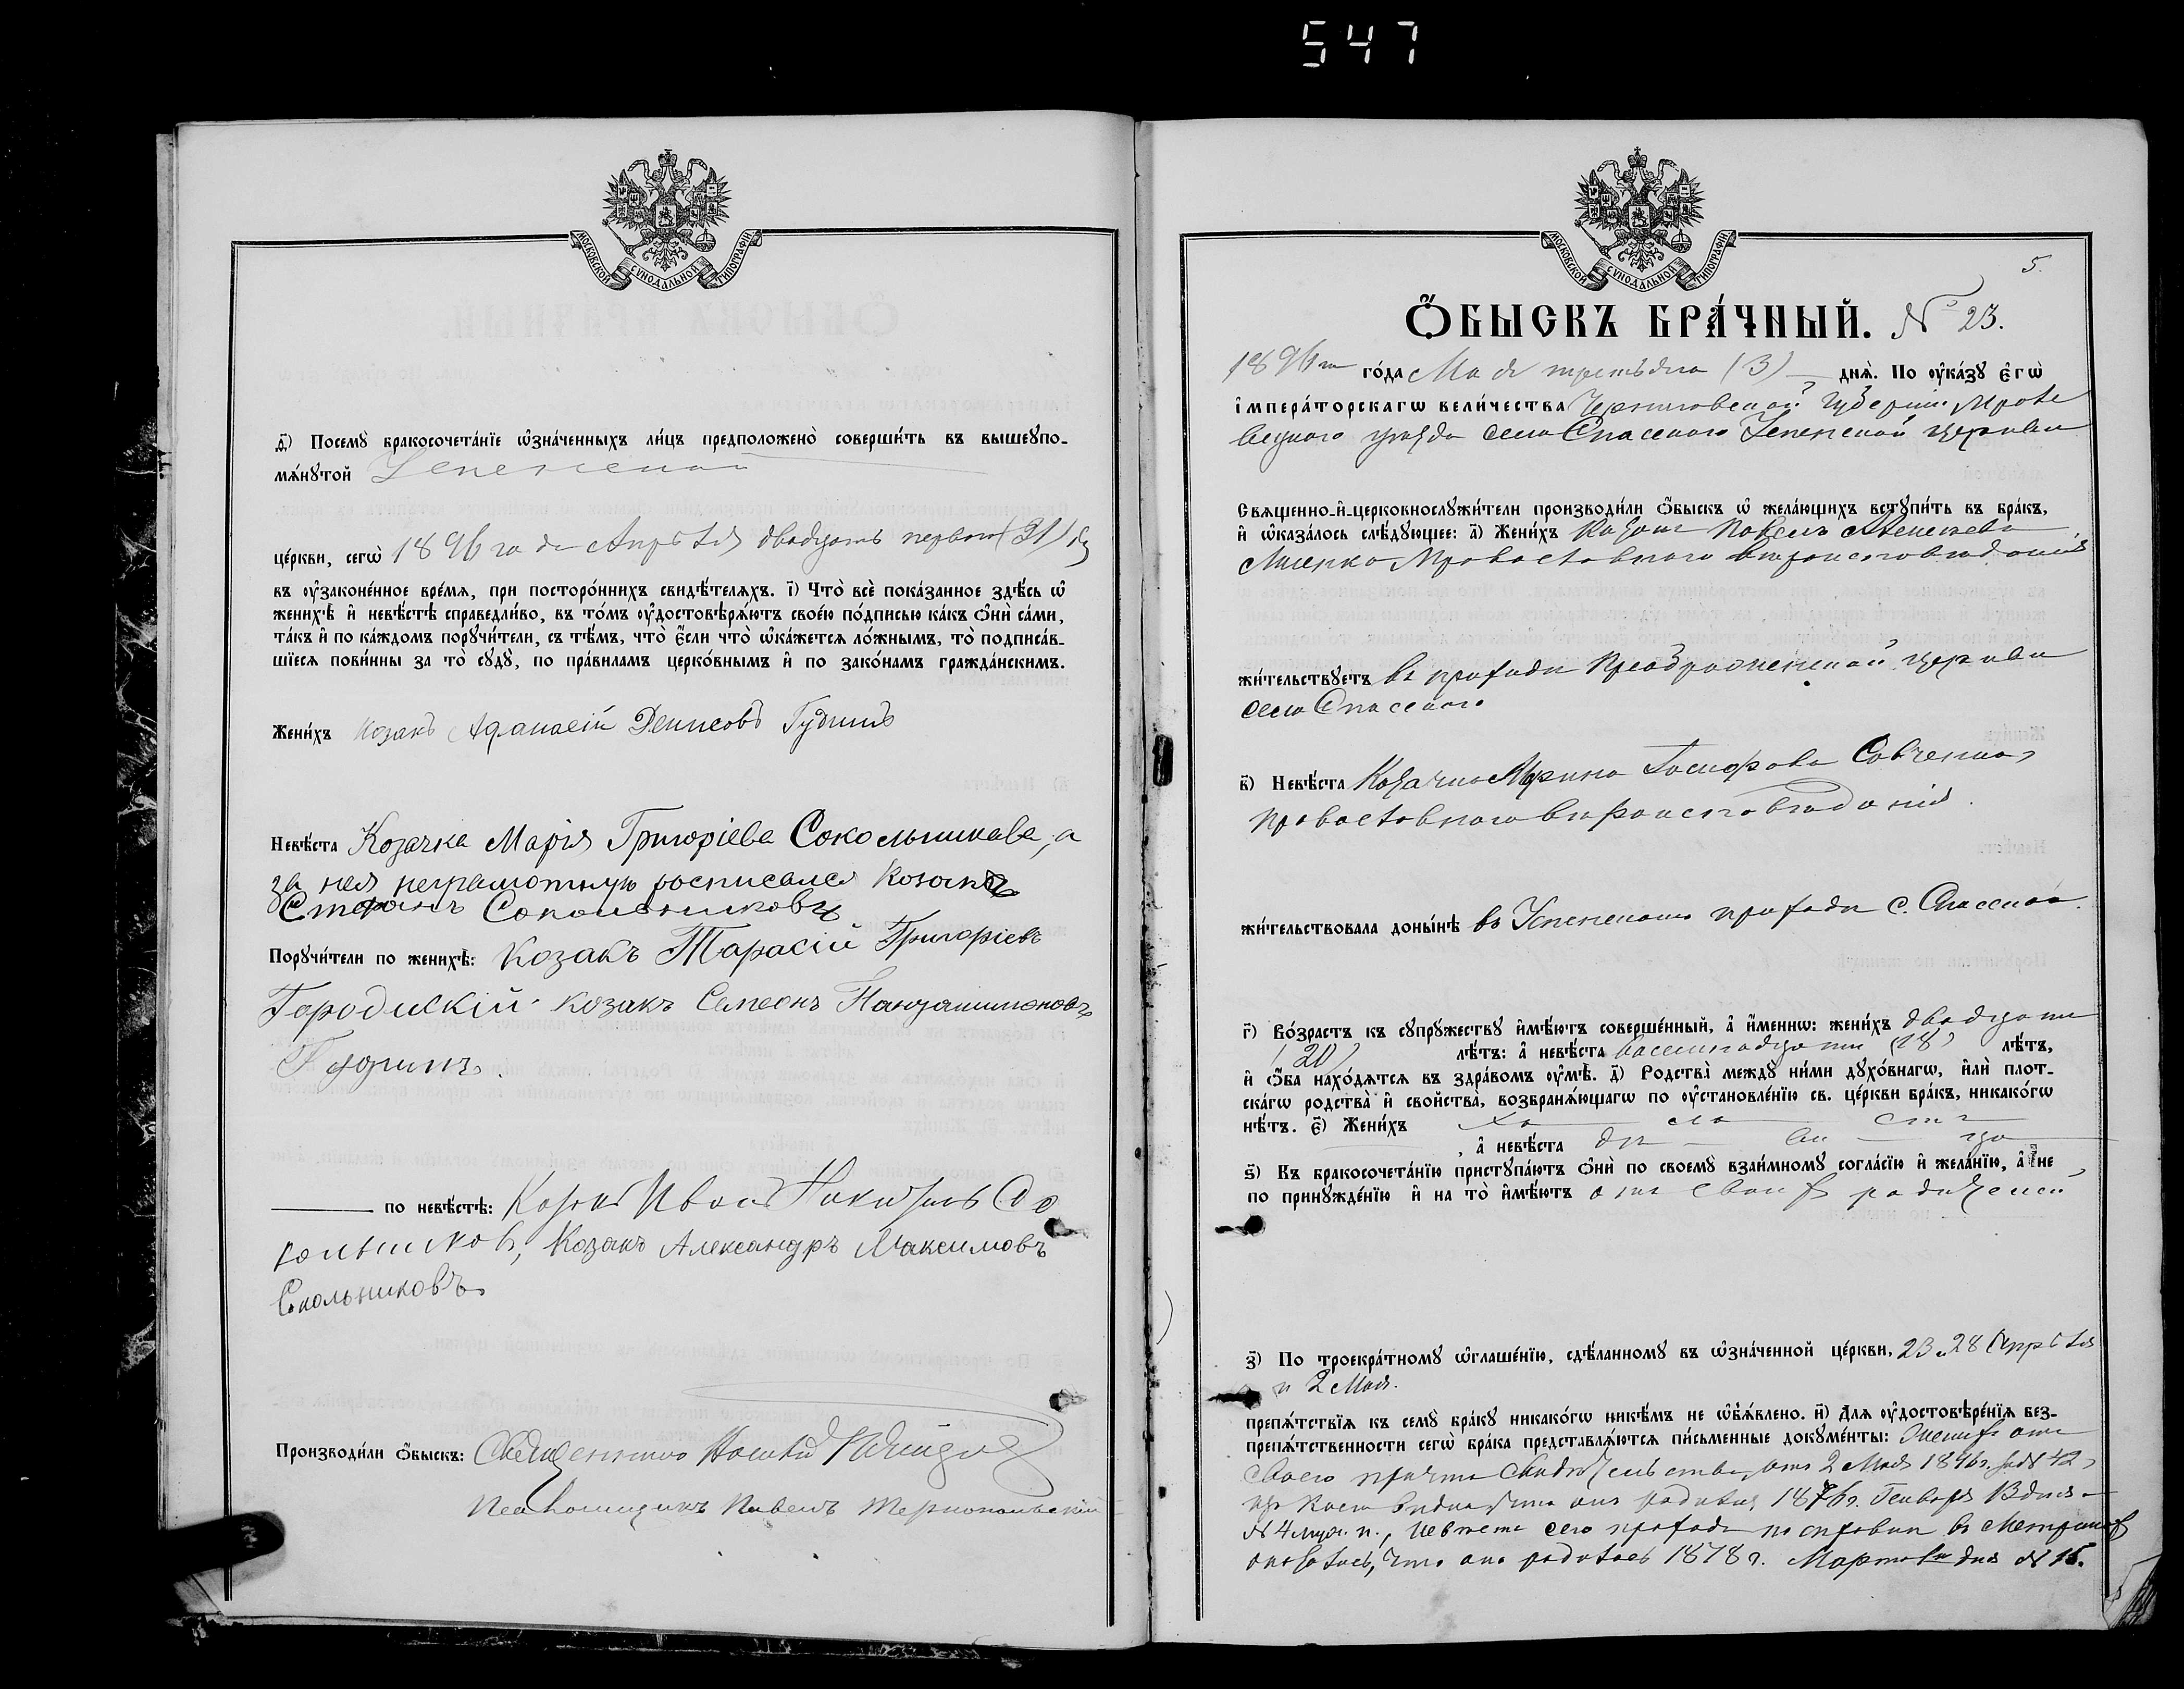 547
МОСКОВСКОЙ СѴНОДАЛЬНОЙ ТИПОГРАФІИ
д҃і) Посемꙋ̀ бракосочета́нїе ѡ҆зна́ченныхъ ли́цъ предположено̀ соверши́ть въ вышеупо-
мѧ́нꙋтой Успенской
це́ркви, сегѡ̀ 1896 года Апрѣля двадцать перваго (21) дня
въ ᲂу҆законе́нное вре́мѧ, при посторо́ннихъ свидѣ́телѧхъ. і҃) Что̀ всѐ пока́занное здѣ́сь ѡ҆
женихѣ̀ и҆ невѣ́стѣ справедли́во, въ то́мъ ᲂу҆достовѣрѧ́ютъ свое́ю по́дписью ка́къ ѻ҆нѝ са́ми,
та́къ и҆ по ка́ждомъ порꙋчи́тели, съ тѣ́мъ, что̀ є҆́сли что̀ ѡ҆ка́жетсѧ ло́жнымъ, то̀ подписа́в-
шїесѧ пови́нны за то̀ сꙋдꙋ̀, по пра́виламъ церко́внымъ и҆ по зако́намъ гражда́нскимъ.
Жени́хъ козакъ Афанасій Денисовъ Гудимъ
Невѣ́ста Козачка Марія Григоріева Сокольникова, а
за нея неграмотную росписался козакъ
Стефанъ Сокольниковъ
Порꙋчи́тели по женихѣ̀: Козакъ Тарасій Григоріевъ
Городискій козакъ Семеонъ Пантелимоновъ
Гудимъ.
по невѣ́стѣ: Козакъ Иванъ Никит Со
кольников, Козакъ Александръ Максимовъ
Сокольниковъ
Производи́ли ѻ҆́быскъ: Священникъ
Псаломщикъ Павелъ Тернопольскій
МОСКОВСКОЙ СѴНОДАЛЬНОЙ ТИПОГРАФІИ
5.
Ѻ҆́БЫСКЪ БРА́ЧНЫЙ. № 23.
1896 го го́да Мая третьяго (3) днѧ̀. По ᲂу҆ка́зꙋ є҆гѡ̀
і҆мпера́торскагѡ вели́чества Черниговской Губерніи Кроле
вецкаго уезда села Спасского Успенской церкви
Свѧщенно-и҆-церковнослꙋжи́тели производи́ли ѻ҆́быскъ ѡ҆ жела́ющихъ встꙋпи́ть въ бра́къ,
и҆ ѡ҆каза́лось слѣ́дꙋющее: а҃) Жени́хъ Козакъ Павелъ Алексеевъ
Лисенко Православного вероисповедания
жи́тельствꙋетъ въ приходе Преображенской церкви
села Спасского
в҃) Невѣ́ста Козачка Ирина Савченко,
православного вероисповедания.
жи́тельствовала доны́нѣ въ Успенскомъ приходе с. Спасскаго.
г҃) Во́зрастъ къ сꙋпрꙋ́жествꙋ и҆мѣ́ютъ соверше́нный, а҆ и҆́меннѡ: жени́хъ двадцати
(20) лѣ́тъ: а҆ невѣ́ста восемнадцати (18) лѣ́тъ,
и҆ ѻ҆́ба нахо́дѧтсѧ въ здра́вомъ ᲂу҆мѣ̀. д҃) Родства̀ междꙋ̀ ни́ми дꙋхо́внагѡ, и҆лѝ плот-
ска́гѡ родства̀ и҆ свойства̀, возбранѧ́ющагѡ по ᲂу҆становле́нїю св. це́ркви бра́къ, никако́гѡ
нѣ́тъ. є҃) Жени́хъ хо — ло — стъ
, а҆ невѣ́ста де — ви — ца
ѕ҃) Къ бракосочета́нїю пристꙋпа́ютъ ѻ҆нѝ по своемꙋ̀ взаи́мномꙋ согла́сїю и҆ жела́нїю, а҆ не
по принꙋжде́нїю и҆ на то̀ и҆мѣ́ютъ отъ своихъ родителей
з҃) По троекра́тномꙋ ѡ҆глаше́нїю, сдѣ́ланномꙋ въ ѡ҆зна́ченной це́ркви, 23, 28 Апрѣля
и 2 Мая.
препѧ́тствїѧ къ семꙋ̀ бра́кꙋ никако́гѡ никѣ́мъ не ѡ҆б̾ѧ́влено. и҃) Длѧ ᲂу҆достовѣре́нїѧ без-
препѧ́тственности сегѡ̀ бра́ка представлѧ́ютсѧ пи́сьменные докꙋме́нты: Жених отъ
своего причта свидетельство отъ 2 Мая 1896 г. за № 42,
изъ коего видно что онъ родился 1876 г. Генваря 13 дня
№ 4 , Невеста сего прихода по справки въ метриках
оказалось, что она родилась 1878 г. Марта дня № 15.